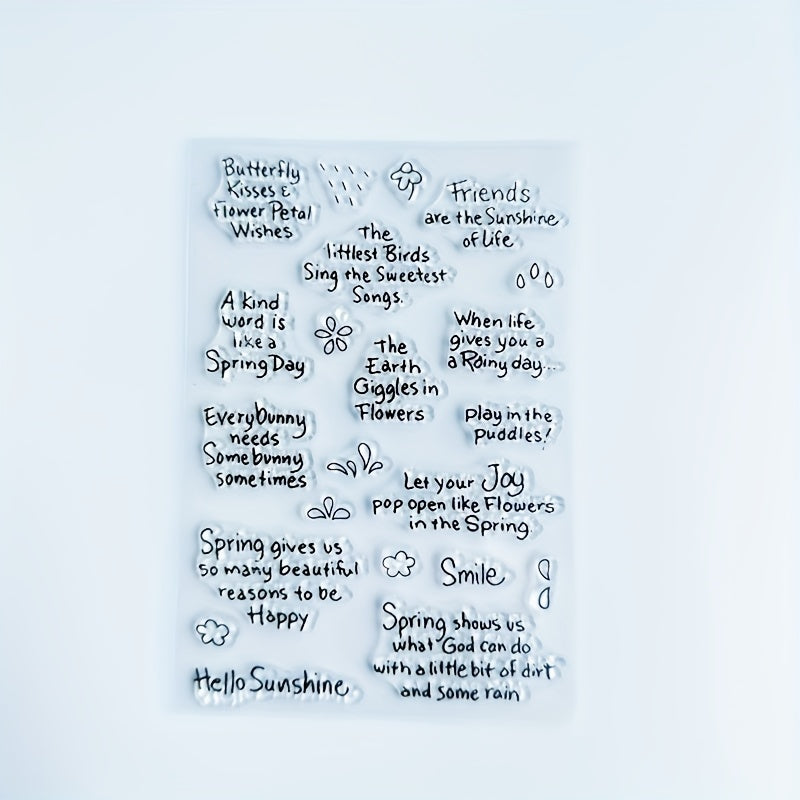 Butterfly
Kisses &
Flower Petal
Wishes
Friends
are the Sunshine
of Life
The
littlest Birds
Sing the Sweetest
Songs.
A Kind
word is
like a
Spring Day
When life
gives you a
a Rainy day...
The
Earth
Giggles in
Flowers
Play in the
puddles!
Everybunny
needs
Somebunny
sometimes
Let your Joy
pop open like Flowers
in the Spring.
Spring gives us
so many beautiful
reasons to be
Happy
Smile
Spring shows us
what God can do
with a little bit of dirt
and some rain
Hello Sunshine